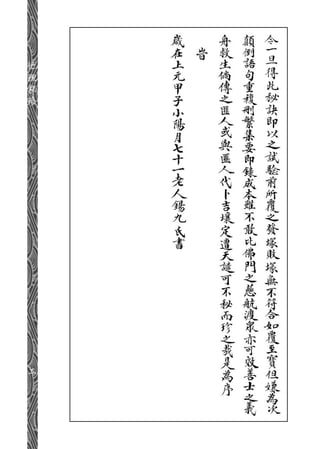 今一旦得此秘訣即以之試驗前所覆之發塚敗塚無不符合如獲至寶但嫌為次
顛倒語句重複刪繁集要即錄成本雖不敢比佛門之慈航渡眾亦可效善士之義
舟救生倘傳之匪人或與匪人代卜吉壤定遭天譴可不秘而珍之哉是為序
時
歲在上元甲子小陽月七十一老人錫九氏書